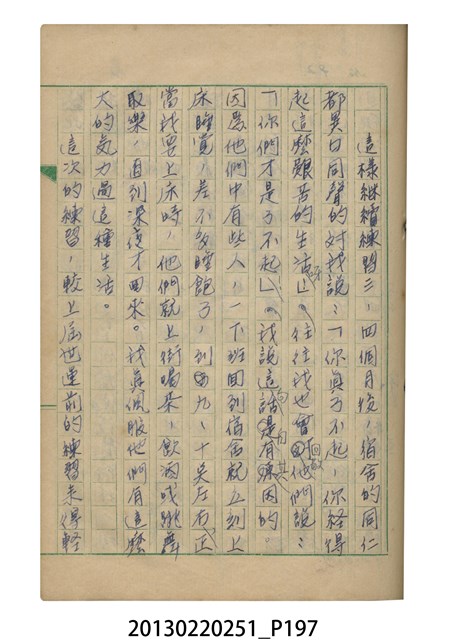 這樣繼續練習三，四個月後，宿舍的同仁
都異口同聲的對我說：「你真了不起，你經得
起這麼艱苦的生活呀」。往往我也會回敬他們說：
「你們才是了不起」。我說這話是有其原因的。
因為他們中有些人，一下班回到宿舍就立刻上
床睡覺，差不多睡飽了，到九、十点左右正
當我要上床時，他們就上街喝茶，飲酒或跳舞
取樂，直到深夜才回來。我真佩服他們有這麼
大的氣力過這種生活。
這次的練習，較上屆世運前的練習來得輕
20130220251_P197